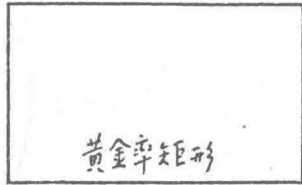 黄金率矩形